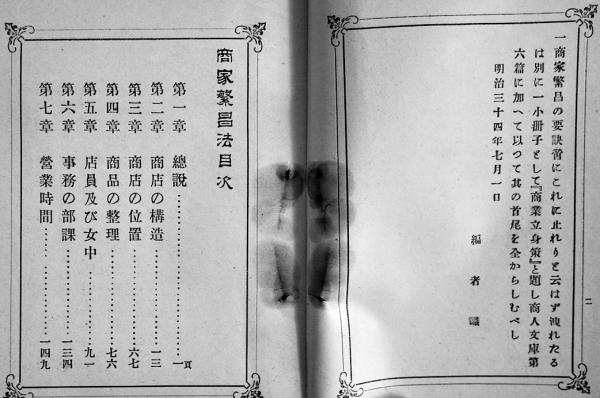 一 商家繁昌の要訣啻にこれに止れりと云はず洩れたる
は別に一小冊子として『商業立身策』と題し商人文庫第
六篇に加へて以つて其の首尾を全からしむべし
明治三十四年七月一日
編者識
二
商家繁昌法目次
第一章 總説……………………一頁
第二章 商店の構造……………一三
第三章 商店の位置……………六七
第四章 商品の整理……………七六
第五章 店員及び女中…………九一
第六章 事務の部課……………一三四
第七章 營業時間………………一四九